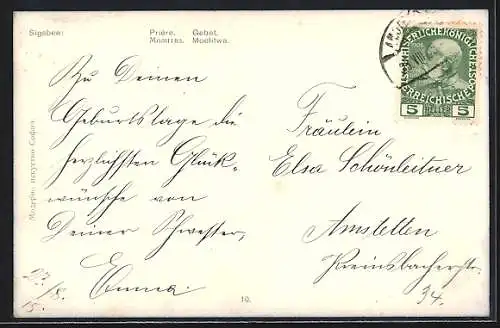 Sigsbee:
Prière. Gebet.
Молитва. Modlitwa.
Модерно искуство София
Zu Deinen
Geburtstage die
herzlichsten Glück-
wünsche von
Deiner Schwester,
Emma.
27./8.
15.
10.
KAISERLICHE KÖNIGLICHE
ÖSTERREICHISCHE POST
5 HELLER 5
Fräulein
Elsa Schönleitner
Amstetten
Kreinsbacherstr.
34.